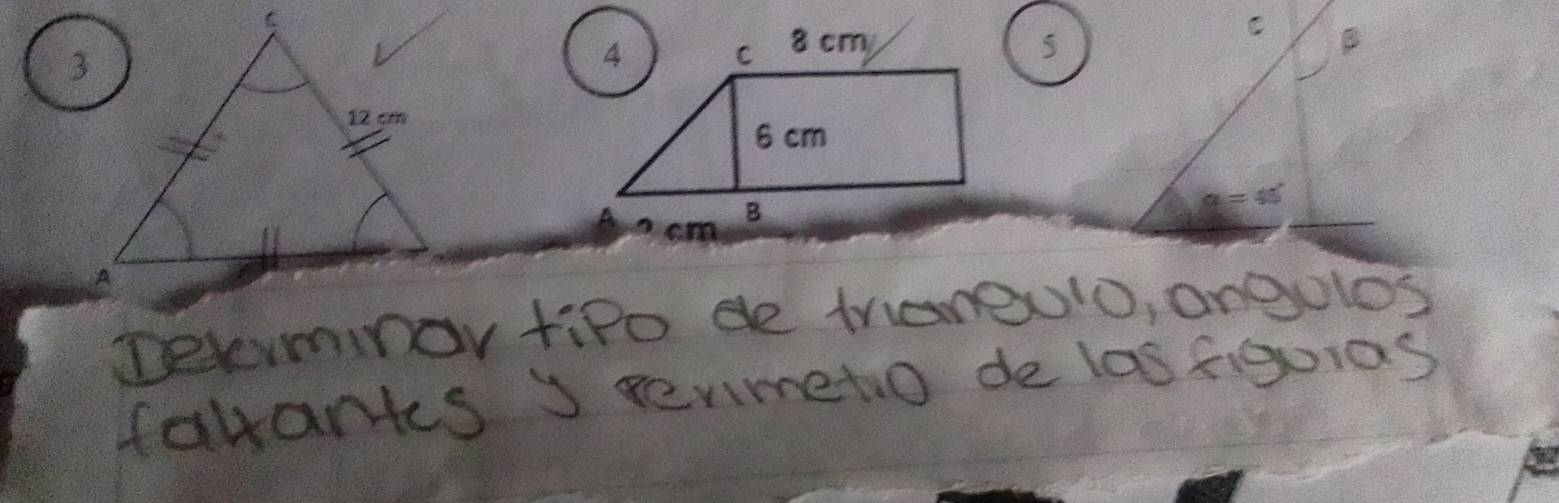 3
C
12 cm
A
4
C 8 cm
6 cm
A ? cm B
5
C B
α = 45°
Determinar tipo de triangulo, angulos
faltantes y perimetro de las figuras